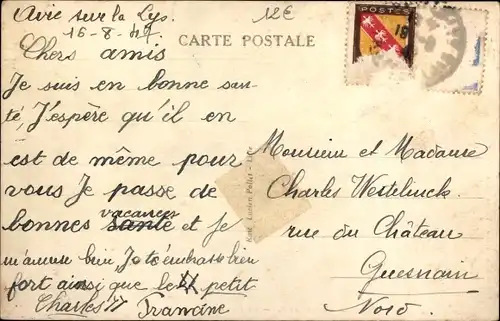 Avie sur la Lys.
12E
16-8-47.
CARTE POSTALE
POSTES
Chers amis
Je suis en bonne san-
té, J'espère qu'il en
est de même pour
vous Je passe de
vacances
bonnes santé et je
m'amuse bien, Je t'embrasse bien
fort ainsi que le petit
Charles
Francine
Monsieur et Madame
Charles Westelinck
rue du Château
Guesnain
Nord